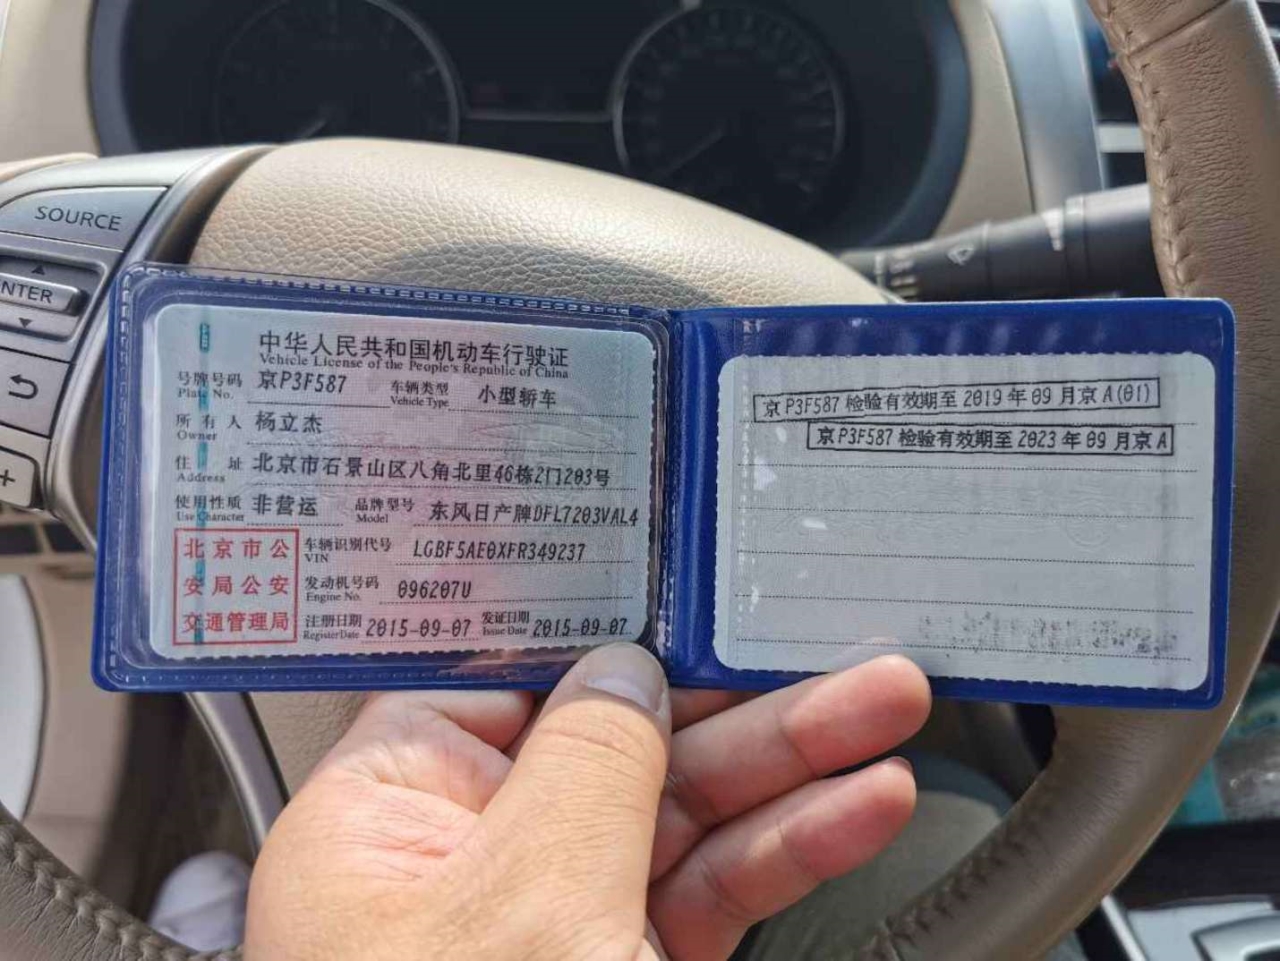 SOURCE
ENTER
+
中华人民共和国机动车行驶证
Vehicle License of the People's Republic of China
号牌号码 京P3F587 车辆类型 小型轿车
Plate No. Vehicle Type
所有人 杨立杰
Owner
住址 北京市石景山区八角北里46栋2门203号
Address
使用性质 非营运 品牌型号 东风日产牌DFL7203VAL4
Use Character Model
北京市公
安局公安
交通管理局
车辆识别代号 LGBF5AE0XFR349237
VIN
发动机号码 096207U
Engine No.
注册日期 2015-09-07 发证日期 2015-09-07
Register Date Issue Date
京P3F587检验有效期至2019年09月京A(01)
京P3F587检验有效期至2023年09月京A